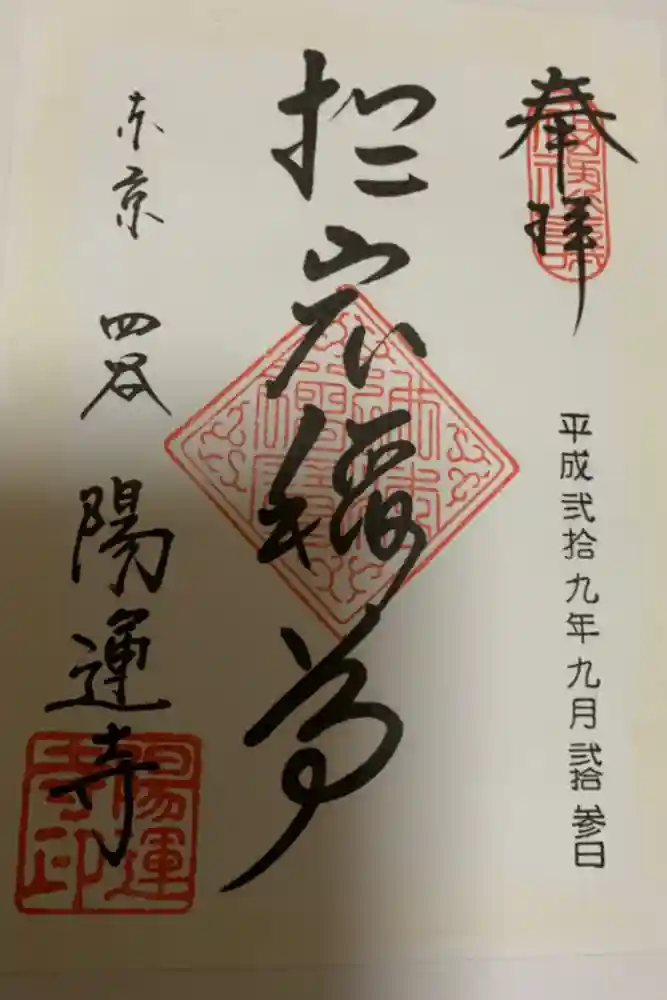 奉拝
平成弐拾九年九月弐拾参日
於岩稲荷
東京 四谷 陽運寺
陽運寺印